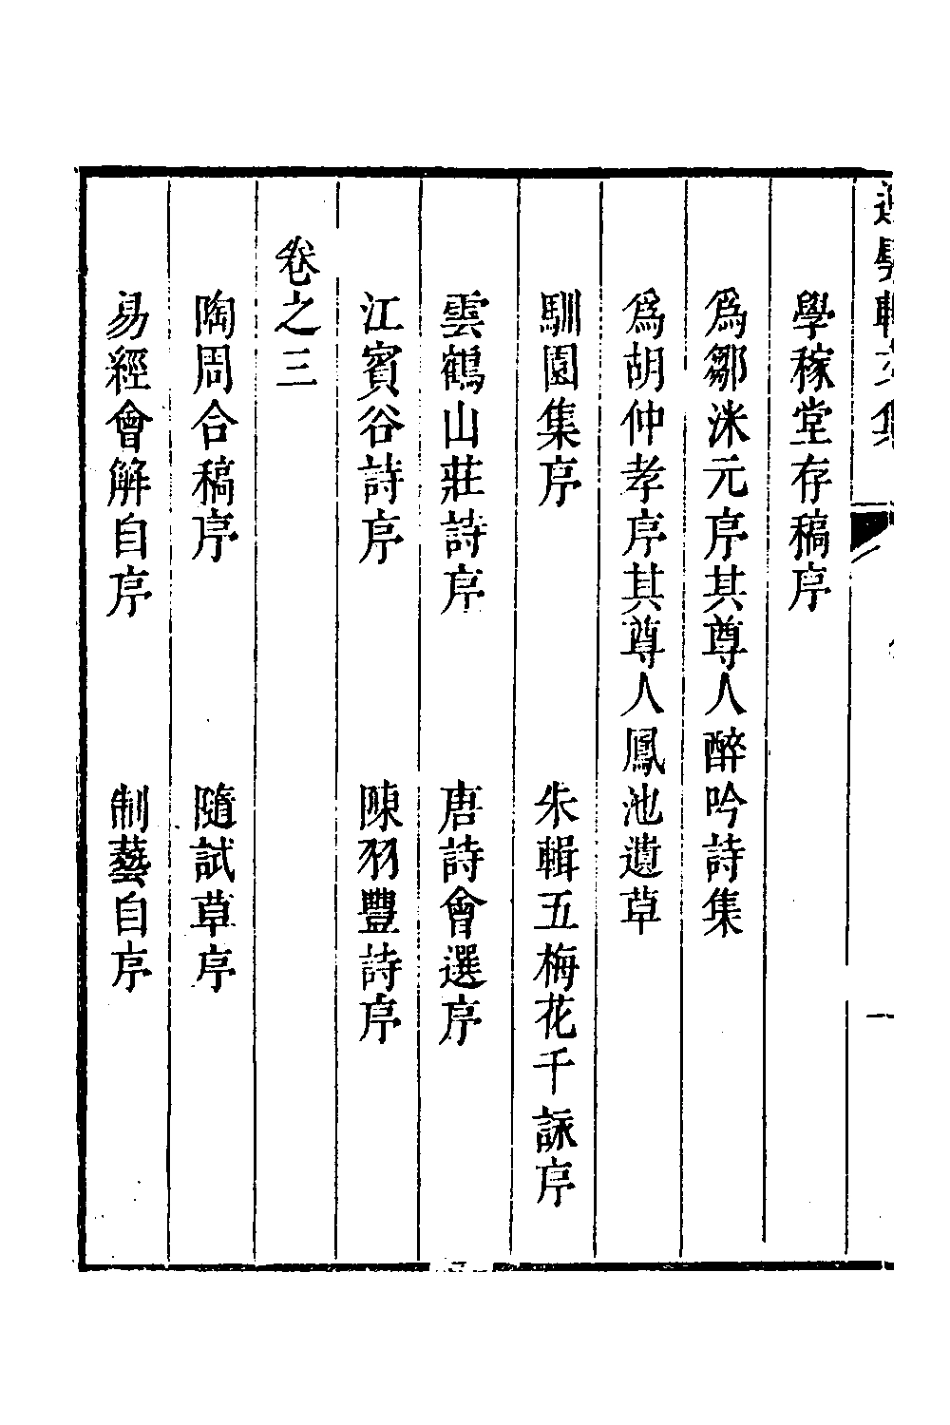 學稼堂存稿序
爲鄒洣元序其尊人醉吟詩集
爲胡仲孝序其尊人鳳池遺草
馴園集序 朱輯五梅花千詠序
雲鶴山莊詩序 唐詩會選序
江賓谷詩序 陳羽豐詩序
卷之三
陶周合稿序 隨試草序
易經會解自序 制藝自序